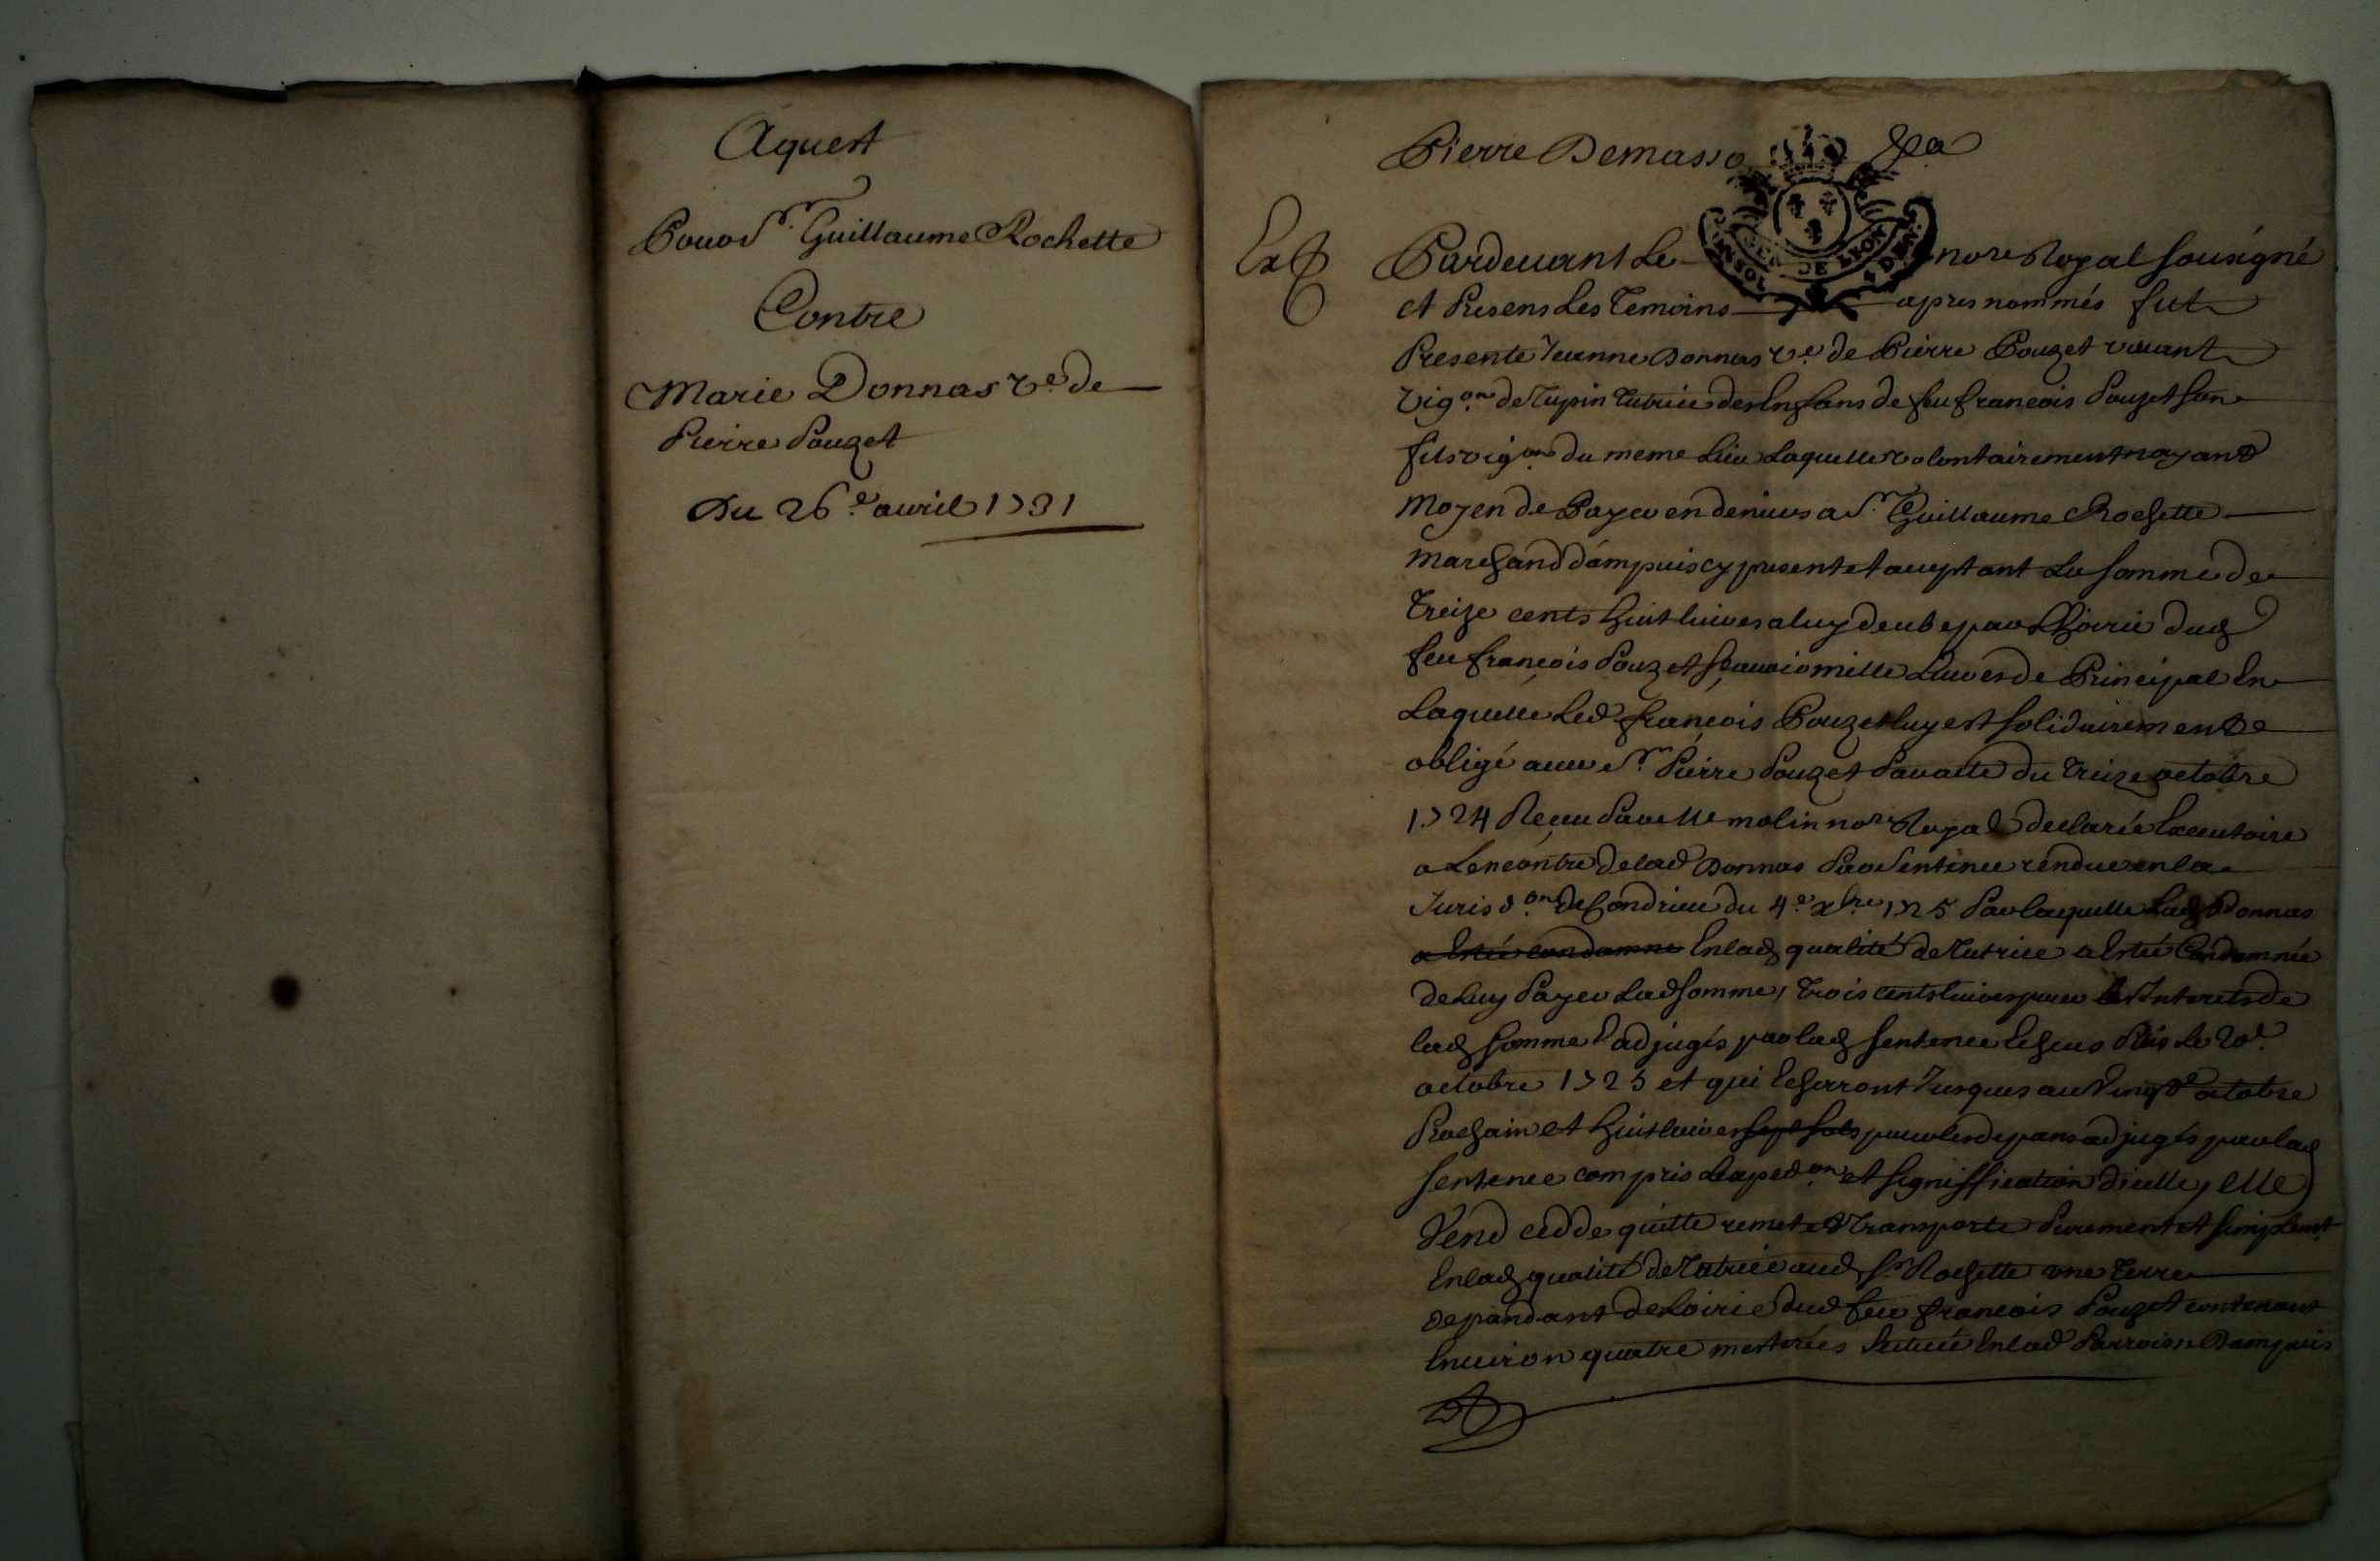 Aquest
Pour Sr. Guillaume Rochette
Contre
Marie Donnas ve. de
Pierre Pouzet
Du 26e. avril 1731
Pierre Demasso &a
Ext
Pardevant Le nore Royal sousigné
GEN. DE LYON
et Presens Les Temoins apres nommés fut
Presente Jeanne Donnas ve. de Pierre Pouzet vivant
vigon. de Tupin tutrice des Enfans de feu francois Pouzet son
fils vigon du meme Lieu Laquelle volontairement nayant
moyen de Payer en deniers a Sr. Guillaume Rochette
marchand dampuis cy present et acceptant La somme de
Treize cents huit livres a luy deube par Lhoirie dud
feu francois Pouzet scavoir mille Livres de Principal En
Laquelle Led francois Pouzet luy est solidairement
obligé avec Sr. Pierre Pouzet Par acte du treize octobre
1724 Receu Par Me molin nore Royal declarée Executoire
a Lencontre de lad Donnas Par Sentence rendue en la
Jurisdon. de Condrieu du 4e. xbre 1725 Par laquelle Lad Donnas
a Estée condamne En lad qualité de Tutrice a Estée Condamnée
de Luy Payer Lad somme, Trois cents livres pour les Interets de
lad somme adjugés par lad sentence Echeus Puis Le 20e.
octobre 1725 et qui Echerront Jusques au Vingte octobre
Prochain et huit livres sept sols pour les depans adjugés par lad
sentence compris Lexpedon. et signiffication dicelle, elle
Vend cedde quitte remet et Transporte Purement et simplemt.
En lad qualité de Tutrice aud Sr. Rochette une Terre
dependant de Loirie dud feu francois Pouzet contenant
Environ quatre mesterées Scituée En lad Parroisse Dampuis